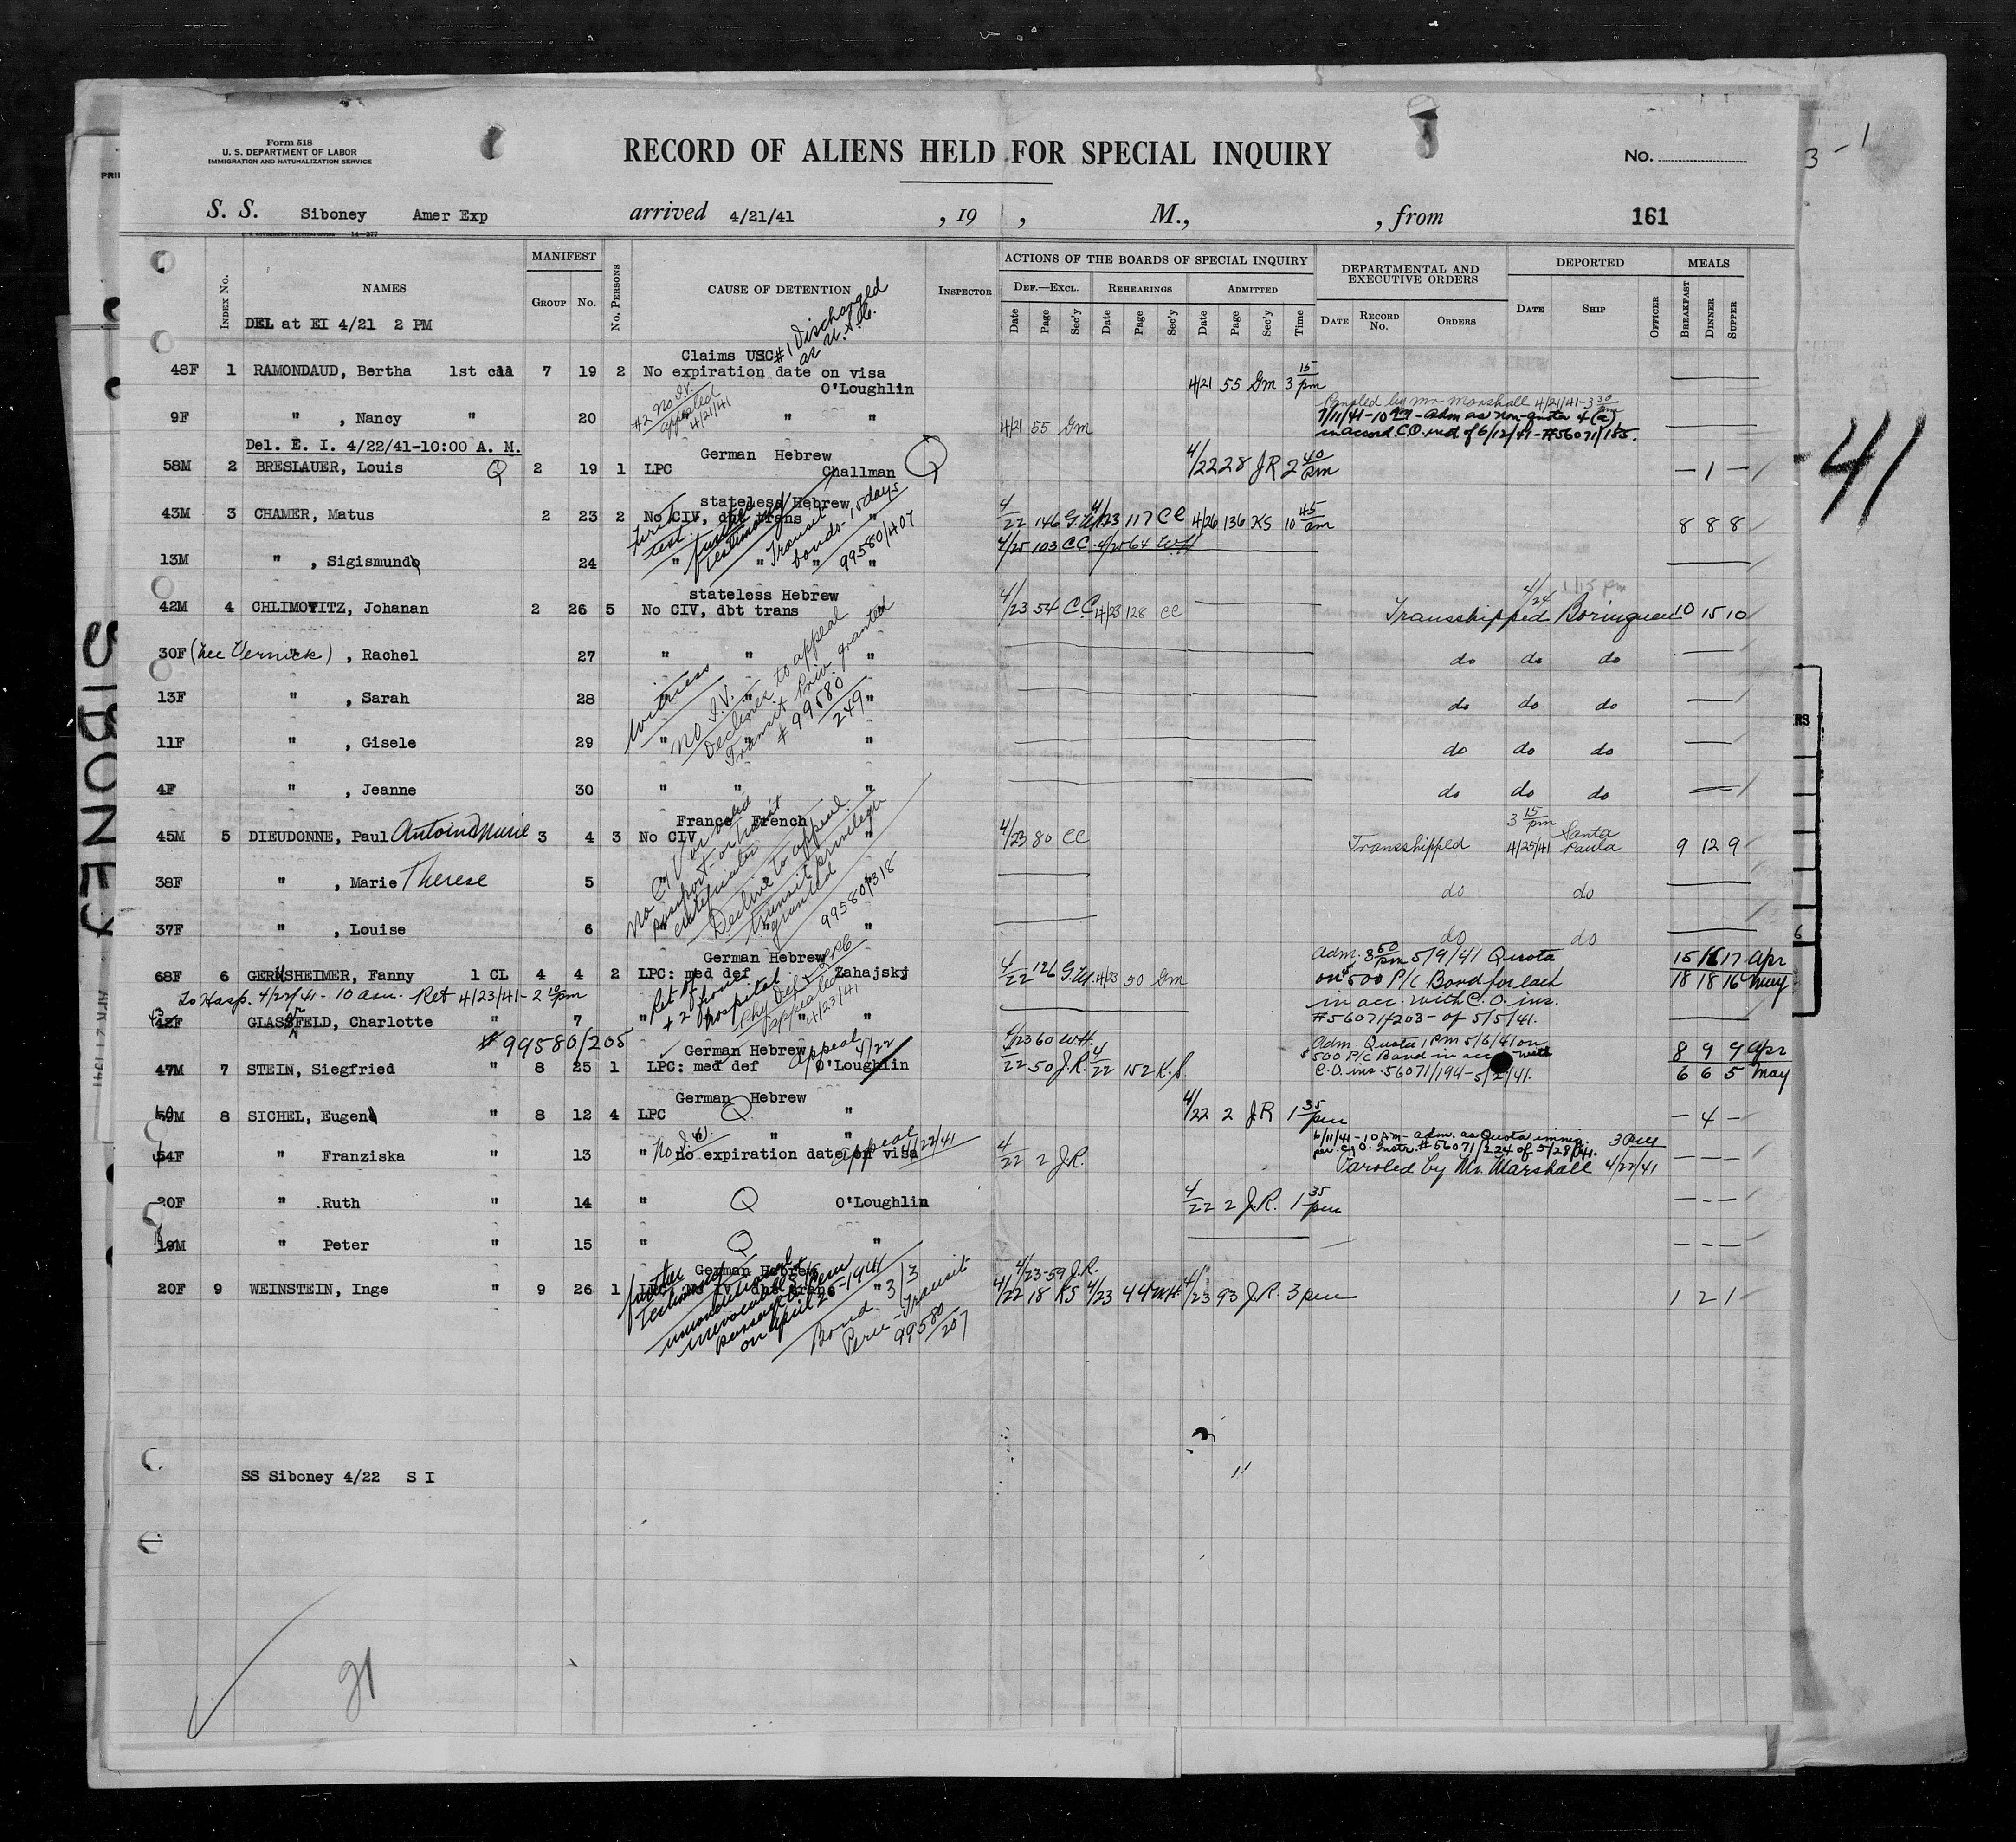 Form 518
U. S. DEPARTMENT OF LABOR
IMMIGRATION AND NATURALIZATION SERVICE
RECORD OF ALIENS HELD FOR SPECIAL INQUIRY
No.
S. S. Siboney Amer Exp arrived 4/21/41 , 19 , M., , from 161
Index No. NAMES MANIFEST Group No. No. Persons CAUSE OF DETENTION Inspector ACTIONS OF THE BOARDS OF SPECIAL INQUIRY Def.—Excl. Rehearings Admitted Date Page Sec'y Date Page Sec'y Date Page Sec'y Time DEPARTMENTAL AND EXECUTIVE ORDERS Date Record No. Orders DEPORTED Date Ship Officer MEALS Breakfast Dinner Supper
DEL at EI 4/21 2 PM
#1 Discharged as U.S.C.
Claims USC
48F 1 RAMONDAUD, Bertha 1st 7 19 2 No expiration date on visa
O'Loughlin 4/21 55 Gm 3 15 pm
#2 No I.V. appealed 4/21/41
Paroled by Mr Marshall 4/21/41-3 30
9F " , Nancy " 20 " " 4/21 55 Gm
7/11/41-10 - Adm as non-quota 4(a)
in accord C.O. inst of 6/12/41-#56071/185.
Del. E. I. 4/22/41-10:00 A. M.
German Hebrew
58M 2 BRESLAUER, Louis Q 2 19 1 LPC Challman Q 4/22 28 JR 2 40 pm — 1 —
stateless Hebrew
43M 3 CHAMER, Matus 2 23 2 No CIV, dbt trans " 4/22 146 G.W. 4/23 117 CC 4/26 136 KS 10 45 am 8 8 8
4/25 103 CC 4/25 64 W.H.
Transit bonds-15 days 99580/407
13M " , Sigismund 24 " " " "
stateless Hebrew
42M 4 CHLIMOVITZ, Johanan 2 26 5 No CIV, dbt trans 4/23 54 C.C. 4/23 128 CC Transshipped 4/24 1/15 pm Borinquen 10 15 10
30F (nee Vernick) , Rachel 27 " " " do do do
13F " , Sarah 28 " " do do do
11F " , Gisele 29 " " " do do do
4F " , Jeanne 30 " " " do do do
Witness
No I.V.
Declines to appeal
Transit Priv. granted
# 99580/249
France French
45M 5 DIEUDONNE, Paul Antoine Marie 3 4 3 No CIV " 4/23 80 CC Transshipped 3 15 pm 4/25/41 Santa Paula 9 12 9
38F " , Marie Therese 5 do do
37F " , Louise 6 " do do
No CIV or valid
passport-or transit
certificates
Decline to appeal
transit privilege
granted
99580/318
German Hebrew
68F 6 GERNSHEIMER, Fanny 1 CL 4 4 2 LPC: med def Zahajskj 4/22 126 G.W. 4/23 50 Gm 15 16 17 Apr
18 18 16 May
Adm. 3 50 pm 5/9/41 Quota
on $500 P/C Bond for each
in acc. with C.O. ins.
#56071/203- of 5/5/41.
To Hosp. 4/22/41-10 am. Ret 4/23/41-2 10 pm
Ret of # 2 from hospital
Phy Def & LPC
appealed 4/23/41
42F GLASSFELD, Charlotte " 7 " " "
# 99580/205
German Hebrew
Appeal 4/22
47M 7 STEIN, Siegfried " 8 25 1 LPC: med def O'Loughlin 4/23 60 W.H.
4/22 50 J.R. 4/22 152 K.S.
Adm. Quota 1 PM 5/6/41 on
$500 P/C Bond in acc with
C.O. ins. 56071/194-5/2/41.
8 9 9 Apr
6 6 5 May
German Hebrew
59M 8 SICHEL, Eugen " 8 12 4 LPC Q " 4/22 2 JR 1 35 pm — 4 —
6/11/41-10 AM- adm. as Quota immig.
per C.O. Instr. #56071/224 of 5/28/41.
54F " Franziska " 13 " no expiration date on visa 4/22 2 J.R.
No I.V. appeal 4/22/41
Paroled by Mr. Marshall 3 PM 4/22/41
20F " Ruth " 14 " Q O'Loughlin 4/22 2 J.R. 1 35 pm
19M " Peter " 15 " Q "
German Hebrew
20F 9 WEINSTEIN, Inge " 9 26 1 " 4/23-59 J.R.
4/22 18 KS 4/23 44 W.H. 4/23 93 J.R. 3 pm 1 2 1
further testimony
unconditional &
irrevocable
passage to Peru
on April 25-1941
Bond 3/3
Peru-Transit
99580/207
SS Siboney 4/22 S I
21
SIBONEY
41
3 - 1